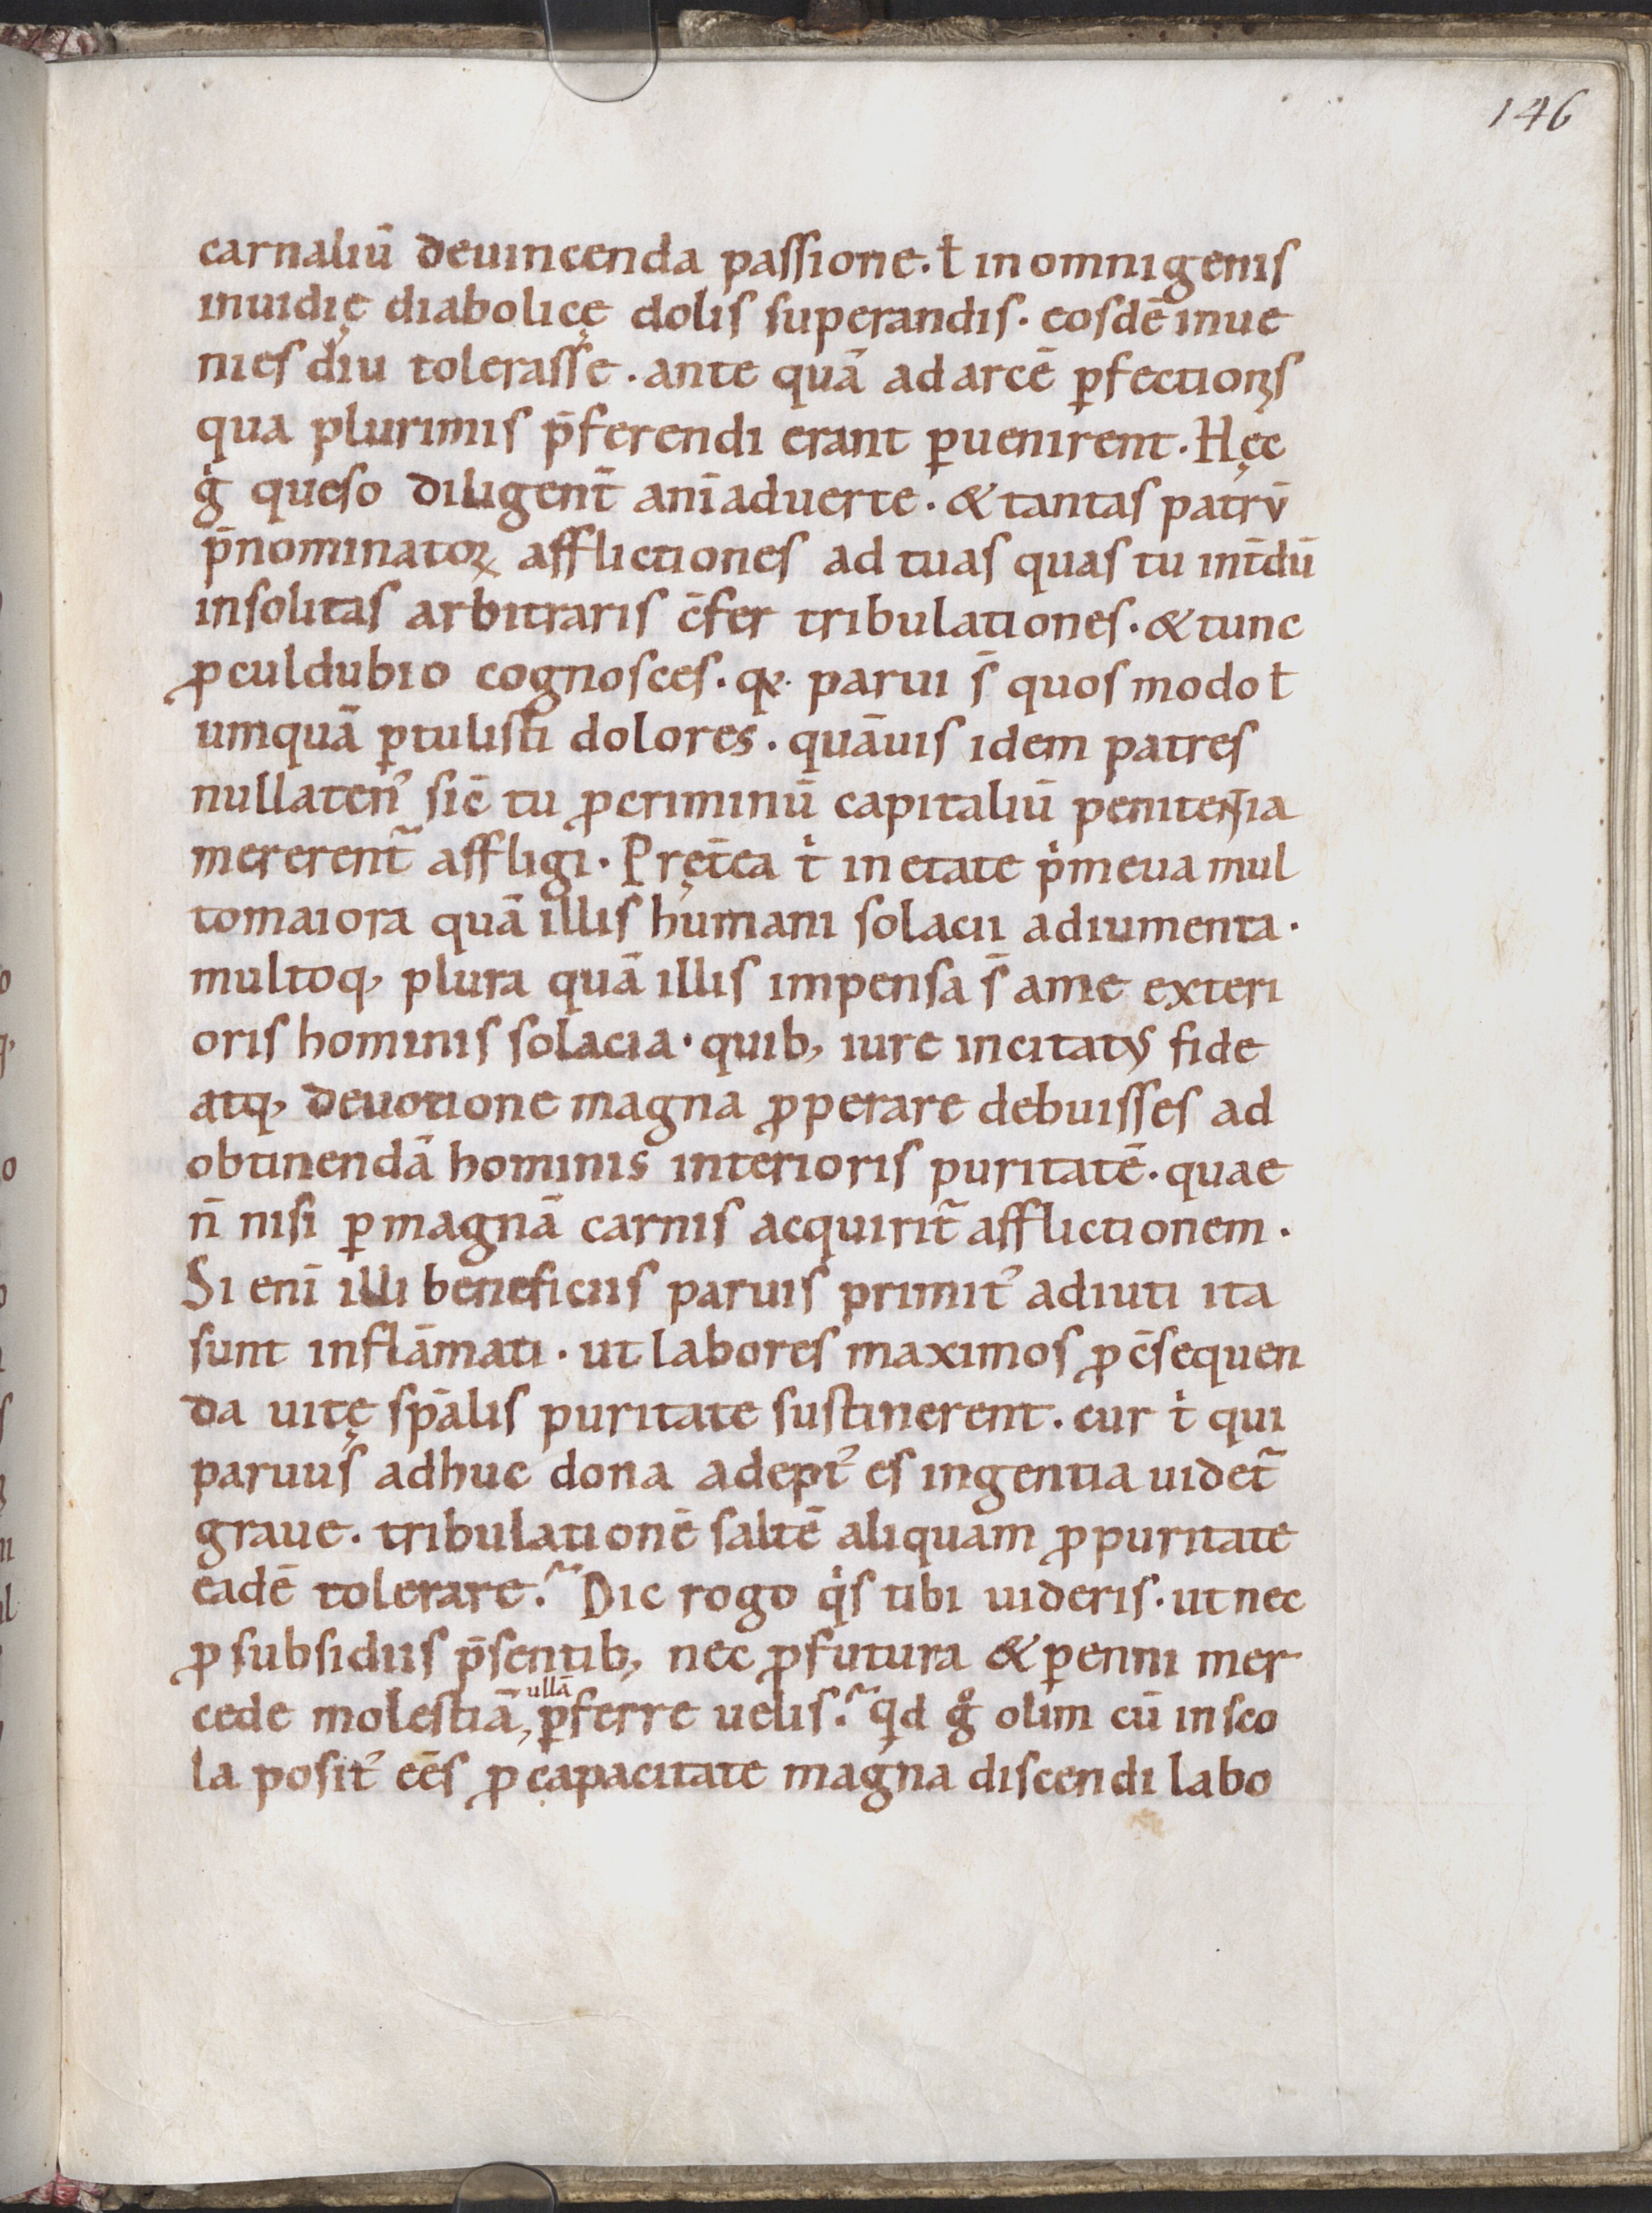 146
carnaliū deuincenda passione. ł in omnigenis
inuidię diabolicę dolis superandis. eosdē inue
nies diu tolerasse. ante quā ad arcē ꝑfectionis
qua plurimis p̄ferendi erant ꝑuenirent. Hęc
gͥ queso diligent̄ anīaduerte. & tantas patrū
p̄nominatoꝝ afflictiones ad tuas quas tu int̄dū
insolitas arbitraris c̄fer tribulationes. & tunc
ꝓculdubio cognosces. qꝫ parui s̄ quos modo ł
umquā ꝑtulisti dolores. quāuis idem patres
nullaten᾿ sic̄ tu ꝓ criminū capitaliū penitentia
mererent̃ affligi. Pręt̄ea tͥ in etate pͥmeua mul
to maiora quā illis humani solacii adiumenta.
multoqꝫ plura quā illis impensa s̄ a me exteri
oris hominis solacia. quibꝫ iure incitatus fide
atqꝫ deuotione magna ꝓperare debuisses ad
obtinendā hominis interioris puritatē. quae
n̄ nisi ꝑ magnā carnis acquirit̃ afflictionem.
Si enī illi beneficiis paruis primit᾿ adiuti ita
sunt inflāmati. ut labores maximos ꝓ c̄sequen
da uitę sp̄alis puritate sustinerent. cur tͥ qui
paruus adhuc dona adept᾿ es ingentia uidet̃
graue. tribulationē saltē aliquam ꝓ puritate
eadē tolerare? Dic rogo qͥs tibi uideris. ut nec
ꝓ subsidiis p̄sentibꝫ nec ꝓ futura & ꝑenni mer
cede molestiā, ullā ꝑferre uelis? qͥd gͦ olim cū in sco
la posit᾿ eēs ꝓ capacitate magna discendi labo